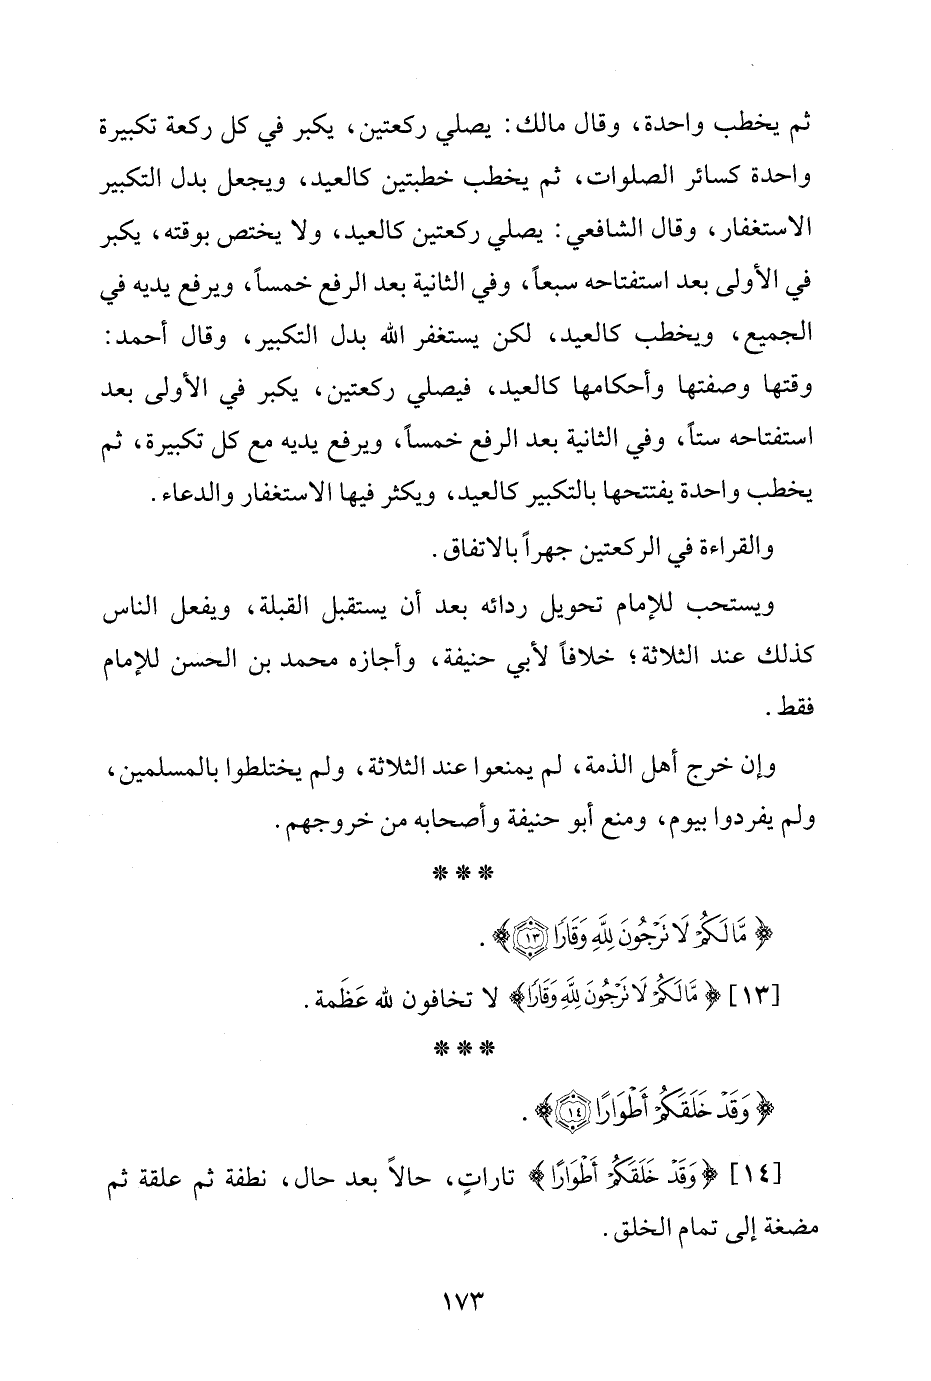 ثم يخطب واحدة، وقال مالك: يصلي ركعتين، يكبر في كل ركعة تكبيرة
واحدة كسائر الصلوات، ثم يخطب خطبتين كالعيد، ويجعل بدل التكبير
الاستغفار، وقال الشافعي: يصلي ركعتين كالعيد، ولا يختص بوقته، يكبر
في الأولى بعد استفتاحه سبعاً، وفي الثانية بعد الرفع خمساً، ويرفع يديه في
الجميع، ويخطب كالعيد، لكن يستغفر الله بدل التكبير، وقال أحمد:
وقتها وصفتها وأحكامها كالعيد، فيصلي ركعتين، يكبر في الأولى بعد
استفتاحه ستاً، وفي الثانية بعد الرفع خمساً، ويرفع يديه مع كل تكبيرة، ثم
يخطب واحدة يفتتحها بالتكبير كالعيد، ويكثر فيها الاستغفار والدعاء.
والقراءة في الركعتين جهراً بالاتفاق.
ويستحب للإمام تحويل ردائه بعد أن يستقبل القبلة، ويفعل الناس
كذلك عند الثلاثة؛ خلافاً لأبي حنيفة، وأجازه محمد بن الحسن للإمام
فقط.
وإن خرج أهل الذمة، لم يمنعوا عند الثلاثة، ولم يختلطوا بالمسلمين،
ولم يفردوا بيوم، ومنع أبو حنيفة وأصحابه من خروجهم.
* * *
﴿مَّا لَكُمْ لَا تَرْجُونَ لِلَّهِ وَقَارًا ١٣﴾.
[١٣] ﴿مَّا لَكُمْ لَا تَرْجُونَ لِلَّهِ وَقَارًا﴾ لا تخافون لله عَظَمة.
* * *
﴿وَقَدْ خَلَقَكُمْ أَطْوَارًا ١٤﴾.
[١٤] ﴿وَقَدْ خَلَقَكُمْ أَطْوَارًا﴾ تاراتٍ، حالاً بعد حال، نطفة ثم علقة ثم
مضغة إلى تمام الخلق.
١٧٣